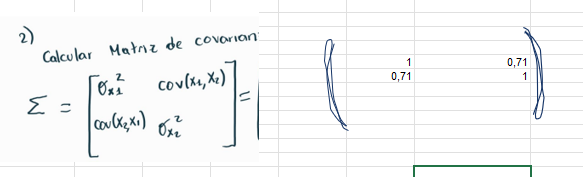 2)
Calcular Matriz de covarian
Σ = [σ²x1 cov(x1,x2)
cov(x2,x1) σ²x2] =
1 0,71
0,71 1